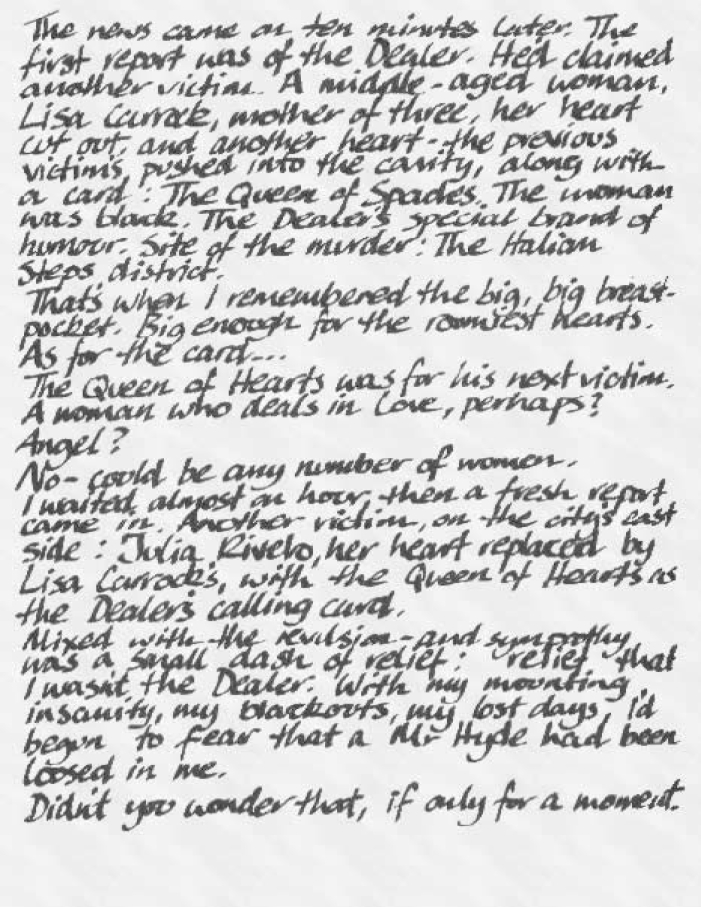 The news came on ten minutes later. The
first report was of the Dealer. He'd claimed
another victim. A middle-aged woman,
Lisa Carrock, mother of three, her heart
cut out, and another heart - the previous
victim's, pushed into the cavity, along with
a card: The Queen of Spades. The woman
was black. The Dealer's special brand of
humour. Site of the murder: The Italian
Steps district.
That's when I remembered the big, big breast-
pocket. Big enough for the roomiest hearts.
As for the card....
The Queen of Hearts was for his next victim.
A woman who deals in Love, perhaps?
Angel?
No- could be any number of women.
I waited almost an hour, then a fresh report
came in. Another victim, on the city's east
side: Julia Rivelo, her heart replaced by
Lisa Carrock's, with the Queen of Hearts as
the Dealer's calling card.
Mixed with the revulsion - and sympathy
was a small dash of relief: relief that
I wasn't the Dealer. With my mounting
insanity, my blackouts, my lost days, I'd
begun to fear that a Mr Hyde had been
loosed in me.
Didn't you wonder that, if only for a moment.